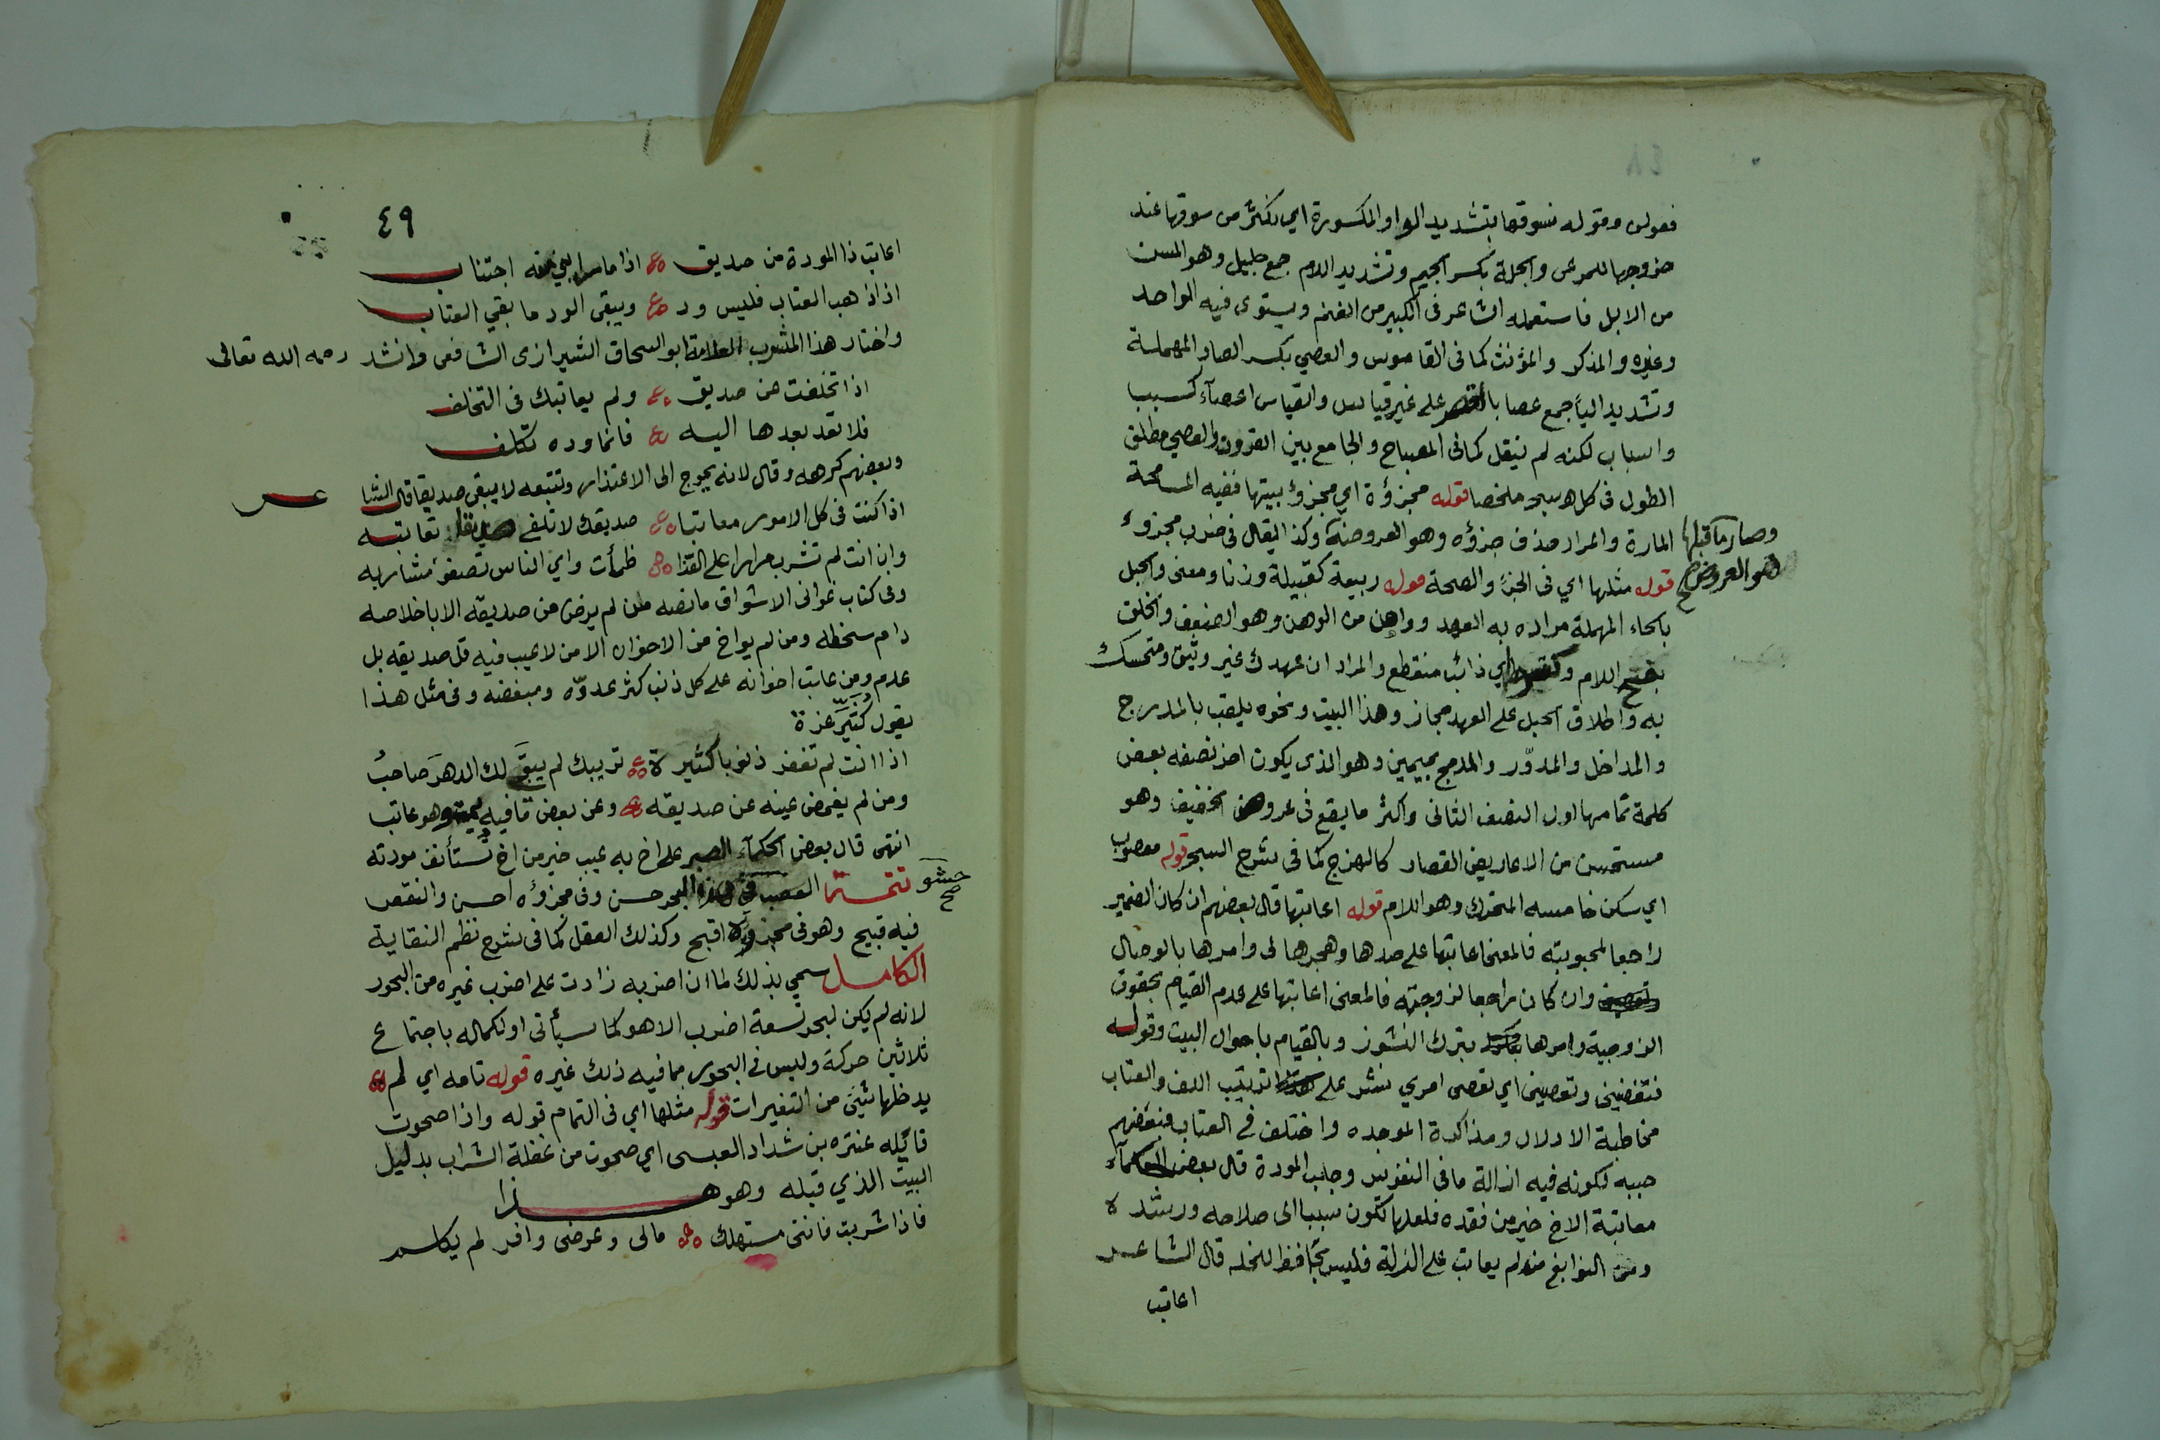 فعولن وقوله نسوقها بتشديد الواو المكسورة اي نكثر من سوقها عند
خروجها للمرعى والجلة بكسر الجيم وتشديد اللام جمع جليل وهو المسن
من الابل فاستعمله الشاعر في الكبير من الغنم ويستوى فيه الواحد
وغيره والمذكر والمؤنث كما في القاموس والعصي بكسر الصاد المهملة
وتشديد الياء جمع عصا بالقصر على غير قياس والقياس اعصآء كسبب
واسباب لكنه لم ينقل كما في المصباح والجامع بين القرون والعصي مطلق
الطول في كل هـ سجـ ملخصا قوله مجزؤة اي مجزؤ بيتها ففيه المسامحة
المارة والمراد حذف جزؤه وهو العروضة وكذا يقال في ضرب مجزوء
وصار ما قبلها
هو العروض صح
قوله مثلها اي في الجزء والصحة قوله ربيعة كقبيلة وزنا ومعنى والحبل
بالحاء المهملة مراده به العهد وواهن من الوهن وهو الضعف والخلق
بفتح اللام اي ذائب منقطع والمراد ان عهدك غير وثيق ومتمسك
به واطلاق الحبل على العهد مجاز وهذا البيت ونحوه يلقب بالمدرج
والمداخل والمدوّر والمدمج بميمين وهو الذى يكون اخر نصفه بعض
كلمة تمامها اول النصف الثانى واكثر ما يقع في عروض الخفيف وهو
مستحسن من الاعاريض القصار كالهزج كما في شرح السجـ قوله معصوب
اي سكن خامسه المتحرك وهو اللام قوله اعاتبها قال بعضهم ان كان الضمير
راجعا لمحبوبته فالمعنى اعاتبها على صدها وهجرها لى وامرها بالوصال
وان كان راجعا لزوجته فالمعنى اعاتبها على عدم القيام بحقوق
الزوجية وامرها بترك النشوز وبالقيام باحوال البيت وقوله
فتغضبني وتعصيني اي تعصى امري نشر على ترتيب اللف والعتاب
مخاطبة الادلال ومذاكرة الموجده واختلف في العتاب فبعضهم
حببه لكونه فيه ازالة ما في النفوس وجلب المودة قال بعض الحكمآء
معاتبة الاخ خير من فقده فلعلها تكون سببا الى صلاحه ورشده
ومن النوابغ من لم يعاتب على الزلة فليس بحافظ للخله قال الشاعر
اعاتب
٤٩
اعاتب ذا المودة من صديق اذا ما رابني منه اجتناب
اذا ذهب العتاب فليس ود ويبقى الود ما بقي العتاب
واختار هذا المشرب العلامة ابو اسحاق الشيرازى الشافعى وانشد رحمه الله تعالى
اذا تخلفت عن صديق ولم يعاتبك في التخلف
فلا تعد بعدها اليه فانما وده تكلف
وبعضهم كرهه وقال لانه يحوج الى الاعتذار وتتبعه لا يبقى صديقا قال الشاعر
اذا كنت في كل الامور معاتبا صديقك لا تلقى تعاتبه
وان انت لم تشرب مرارا على القذا ظمأت واي الناس تصفو مشاربه
وفى كتاب غوانى الاشواق ما نصه من لم يرض من صديقه الا باخلاصه
دام سخطه ومن لم يواخ من الاخوان الا من لا عيب فيه قل صديقه بل
عدم ومن عاتب اخوانه على كل ذنب كثر عدوّه ومبغضه وفى مثل هذا
يقول كُثَيِّر عزة
اذا انت لم تغفر ذنوبا كثيرة تريبك لم يبقَ لك الدهرَ صاحبُ
ومن لم يغمض عينه عن صديقه وعن بعض ما فيه يمت وهو عاتب
انتهى قال بعض الحكمآء الصبر على اخ به عيب خير من اخ تستأنف مودته
تتمة العصب في حشو هذا البحر حسن وفى مجزؤه احسن والنقص
حشو صح
فيه قبيح وهو فى مجزوئه اقبح وكذلك العقل كما فى شرح نظم النقاية
الكامل سمي بذلك لما ان اضربه زادت على اضرب غيره من البحور
لانه لم يكن لبحر تسعة اضرب الا هو كما سيأتى او لكماله باجتماع
ثلاثين حركة وليس فى البحور مما فيه ذلك غيره قوله تامه اي لم
يدخلها شئ من التغيرات قوله مثلها اي فى التمام قوله واذا صحوت
قائله عنتره بن شداد العبسى اي صحوت من غفلة الشراب بدليل
البيت الذي قبله وهو هذا
فاذا شربت فانني مستهلك مالى وعرضى وافر لم يكلم